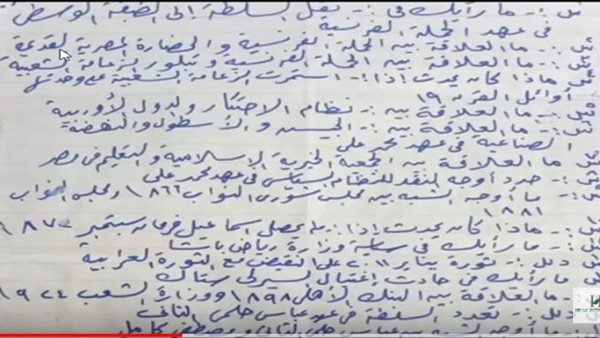 س :- ما رأيك فى :- نقل السلطة إلى الطبقة الوسطى
فى عهد الحملة الفرنسية
س :- ما العلاقة بين الحملة الفرنسية والحضارة المصرية القديمة
س :- ما العلاقة بين الحملة الفرنسية وتبلور الزعامة الشعبية
س ماذا كان يحدث إذا :- استمرت الزعامة الشعبية على وحدتها
أوائل القرن ١٩
س :- ما العلاقة بين :- نظام الاحتكار والدول الأوربية
س :- ما العلاقة بين :- الجيش والأسطول والنهضة
الصناعية فى عهد محمد على
س ما العلاقة بين الجمعية الخيرية الإسلامية والتعليم فى مصر
س :- حدد أوجه النقد للنظام السياسى فى عهد محمد على
ما أوجه الشبه بين مجلس شورى النواب ١٨٦٦ ومجلس النواب
١٨٨١
س :- ماذا كان يحدث إذا :- لم يحصل اسماعيل فرمان سبتمبر
س :- ما رأيك فى سياسة وزارة رياض باشا
دلل :- ثورة يناير ٢٠١١ على النقيض مع الثورة العرابية
ما رأيك فى حادث اغتيال السير لى ستاك
:- ما العلاقة بين البنك الأهلى ١٨٩٨ ووزارة الشعب ١٩٢٤
دلل :- تعدد السلطة فى عهد عباس حلمى الثانى
ما أوجه الشبه بين عباس حلمى الثانى ومصطفى كامل